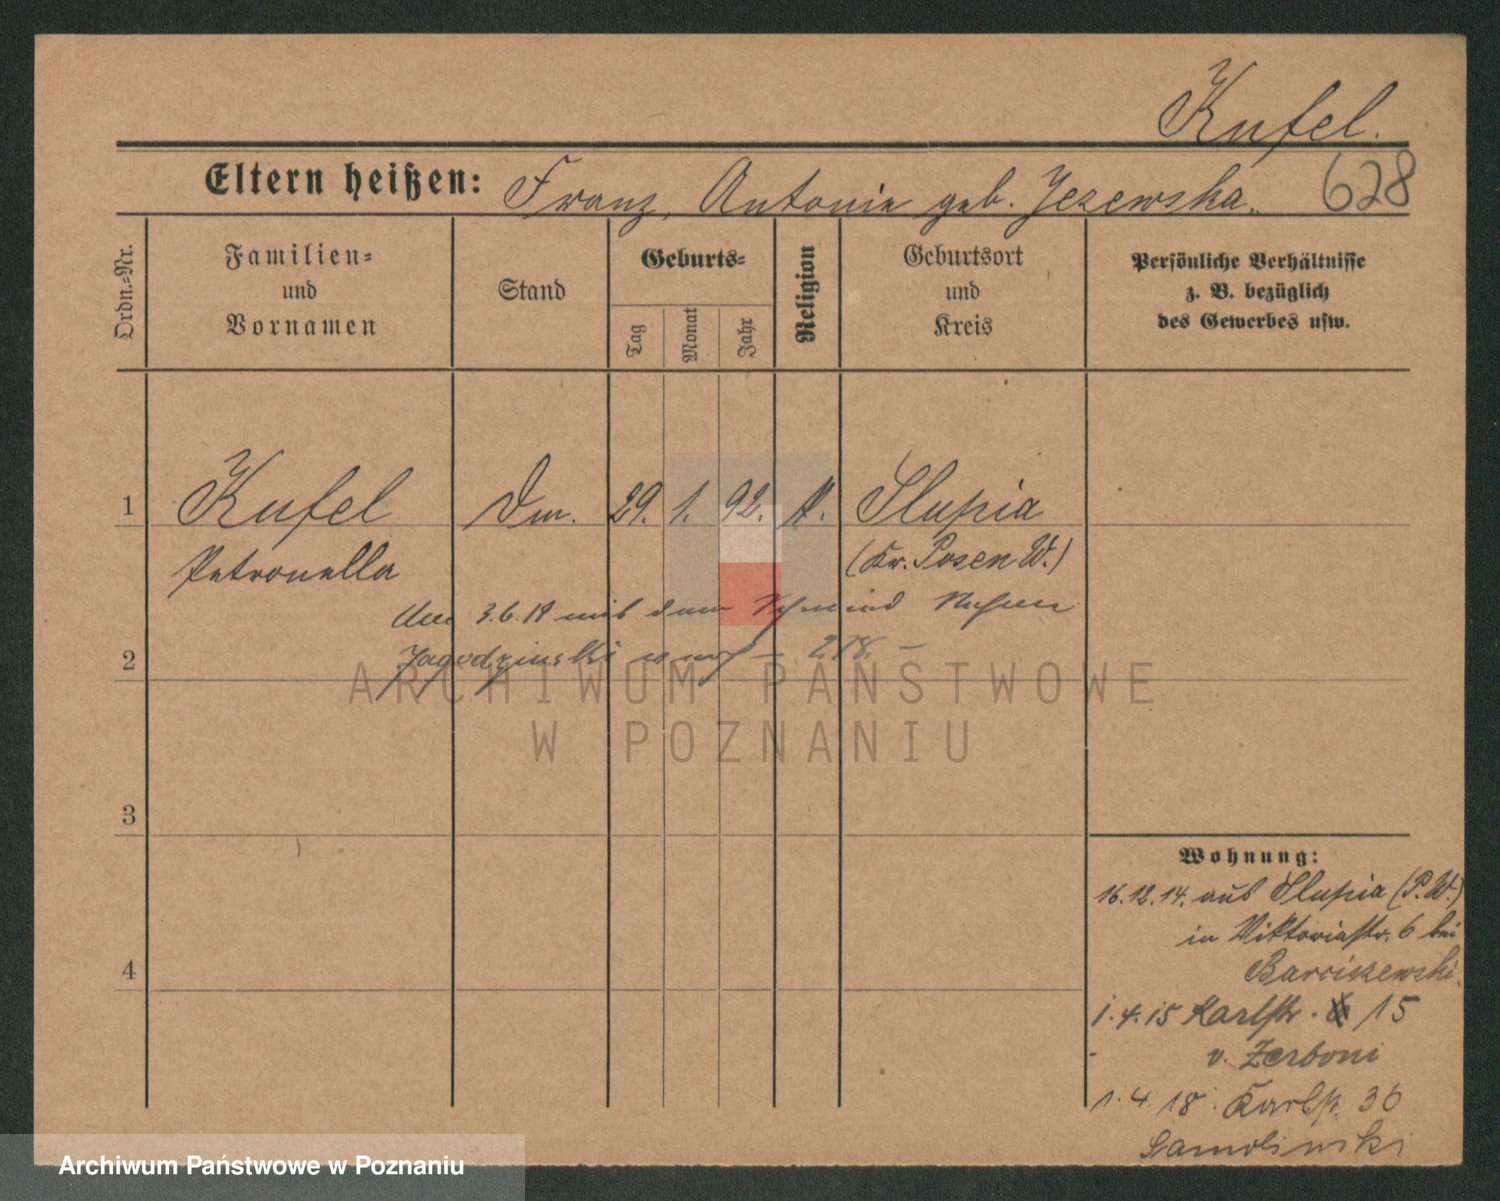 Kufel.
Eltern heißen: Franz, Antonie geb. Jezewska. 628
Ordn.=Nr.
Familien=
und
Vornamen
Stand
Geburts=
Tag
Monat
Jahr
Religion
Geburtsort
und
Kreis
Persönliche Verhältnisse
z. B. bezüglich
des Gewerbes usw.
1 Kufel Dm. 29. 1. 92. k. Slupia
Petronella (Kr. Posen W.)
3.6.19 mit dem Schmied
2 Jagodzinski
ARCHIWUM PAŃSTWOWE
W POZNANIU
3
4
Wohnung:
16.12.14. aus Slupia (P.W.)
in Viktoriastr. 6 bei
Barciszewski.
1.4.15 Karlstr. 15
v. Zerboni
1.4.18. Karlstr. 36
Samolinski
Archiwum Państwowe w Poznaniu